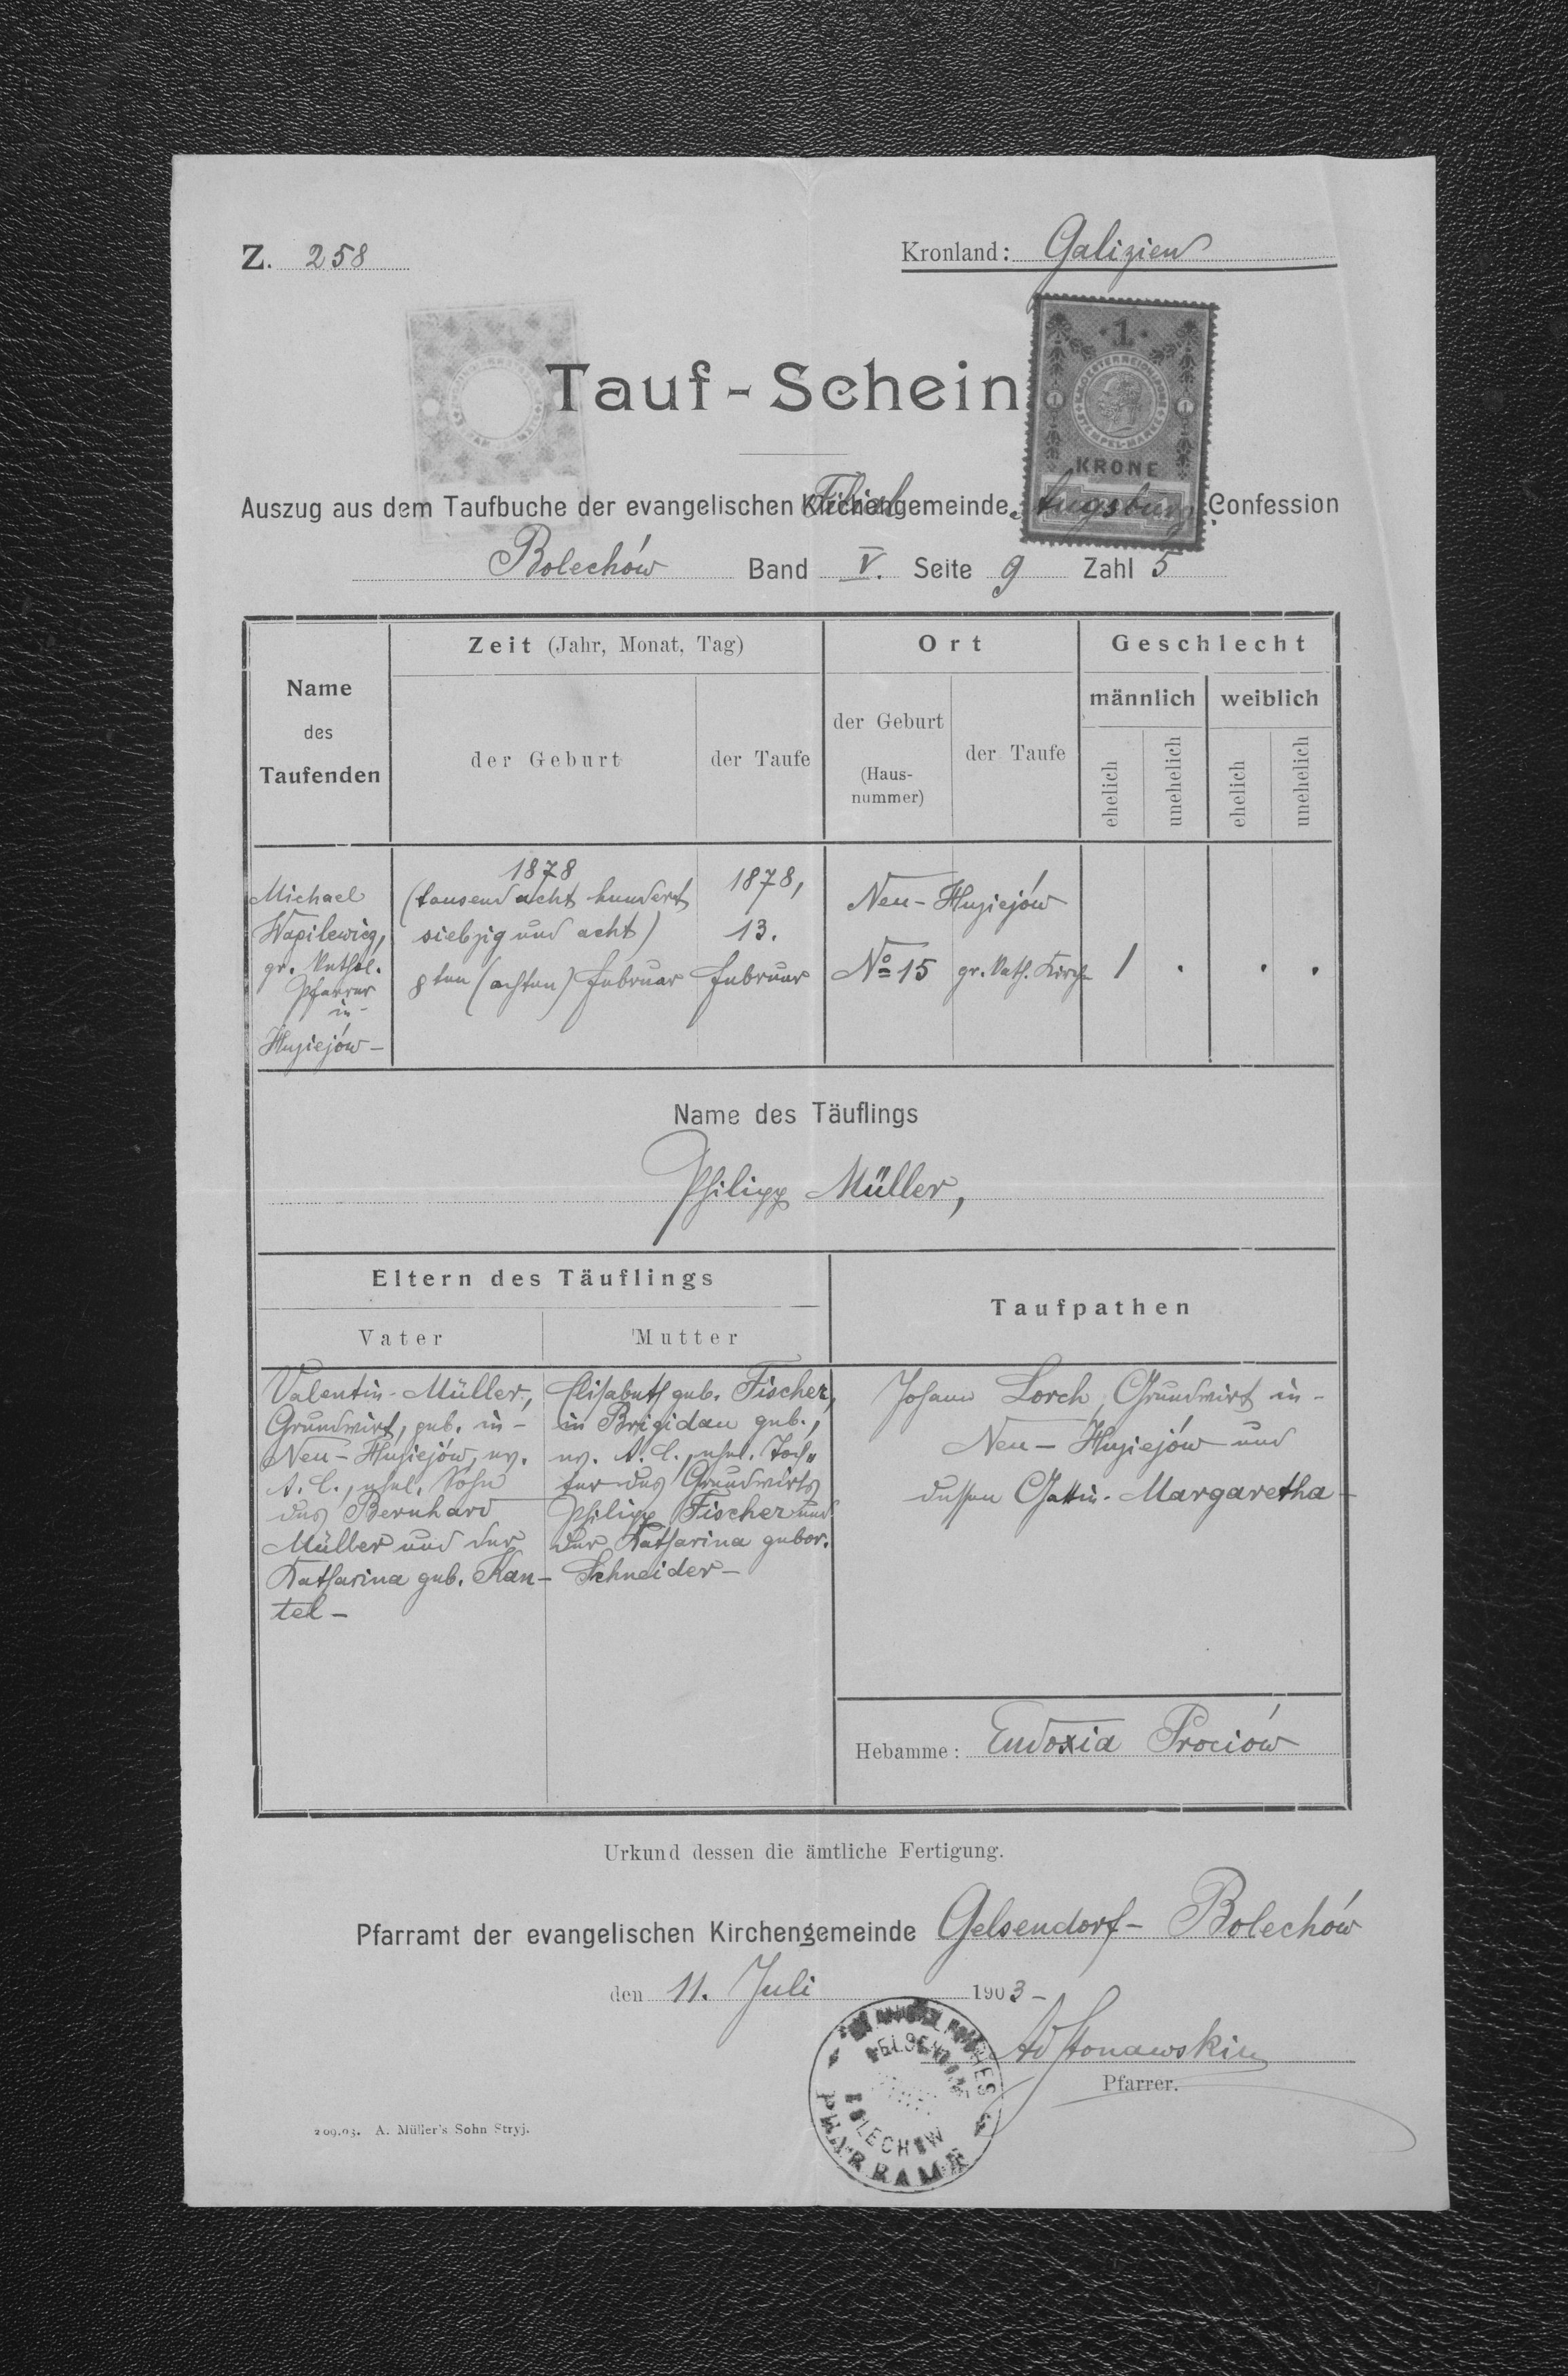 Z. 258
Kronland: Galizien
1
KRONE
STEMPEL-MARKE
Tauf-Schein
Auszug aus dem Taufbuche der evangelischen Kirchengemeinde Augsburg. Confession
Filial
Bolechów Band V. Seite 9 Zahl 5
Name des Taufenden
Zeit (Jahr, Monat, Tag)
der Geburt
der Taufe
Ort
der Geburt (Hausnummer)
der Taufe
Geschlecht
männlich
weiblich
ehelich
unehelich
ehelich
unehelich
Michael
Wasilewicz,
gr. kathol.
Pfarrer
in
Huziejów -
1878
(tausend acht hundert
siebzig und acht)
8ten (achten) Februar
1878,
13.
Februar
Neu-Huziejów
No 15
gr. kath. Kirche
1 . . .
Name des Täuflings
Philipp Müller,
Eltern des Täuflings
Vater
Mutter
Taufpathen
Valentin Müller,
Grundwirt, geb. in
Neu-Huziejów, ev.
A. C., ehel. Sohn
des Bernhard
Müller und der
Katharina geb. Kan-
tel -
Elisabeth geb. Fischer,
in Brigidau geb.,
ev. A. C., ehel. Toch"
ter des Grundwirts
Philipp Fischer und
der Katharina gebor.
Schneider -
Johann Lorch, Grundwirt in
Neu-Huziejów und
dessen Gattin Margaretha -
Hebamme: Eudoxia Prociów
Urkund dessen die ämtliche Fertigung.
Pfarramt der evangelischen Kirchengemeinde Gelsendorf- Bolechów
den 11. Juli 1903 -
Pfarrer.
BOLECHÓW
PFARRAMT
209.03. A. Müller's Sohn Stryj.